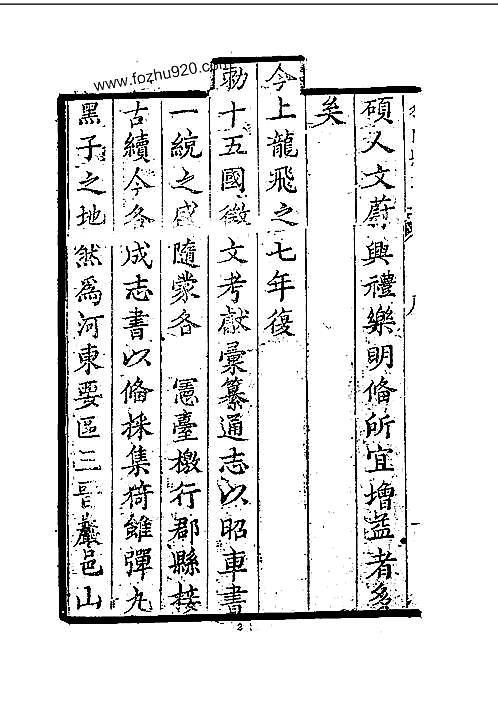 碩人文蔚興禮樂明俻所宜增益者多
矣
今上龍飛之七年復
勅十五國徵文考獻彙纂通志以昭車書
一統之盛隨蒙各　憲臺檄行郡縣接
古續今各成志書以俻採集猗雖彈丸
黑子之地然爲河東要區三晉巖邑山
www.fozhu920.com
2